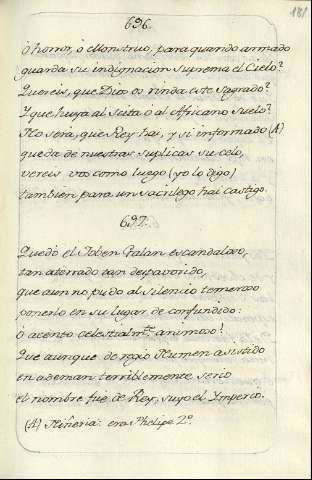 181
696.
ò horror, ò Monstruo, para quando armado
guarda su indignacion suprema el Cielo?
Quereis, que Dios os rinda este Sagrado?
Y que huya al Scita ò al Africano suelo?
No será, que Rey hai, y si informado (A)
queda de nuestras suplicas su celo,
vereis vos como luego (yo lo digo)
tambien para un sacrilego hai castigo.
697.
Quedó el Joben Galan escandaloso,
tan aterrado tan despavorido,
que aun no pudo al silencio temeroso
ponerlo en su lugar de confundido:
ò acento celestialmte. animoso!
Que aunque de regio Numen asistido
en ademan terriblemente serio
el nombre fue de Rey, suyo el Imperio.
(A) Niñeria: era Phelipe 2º.